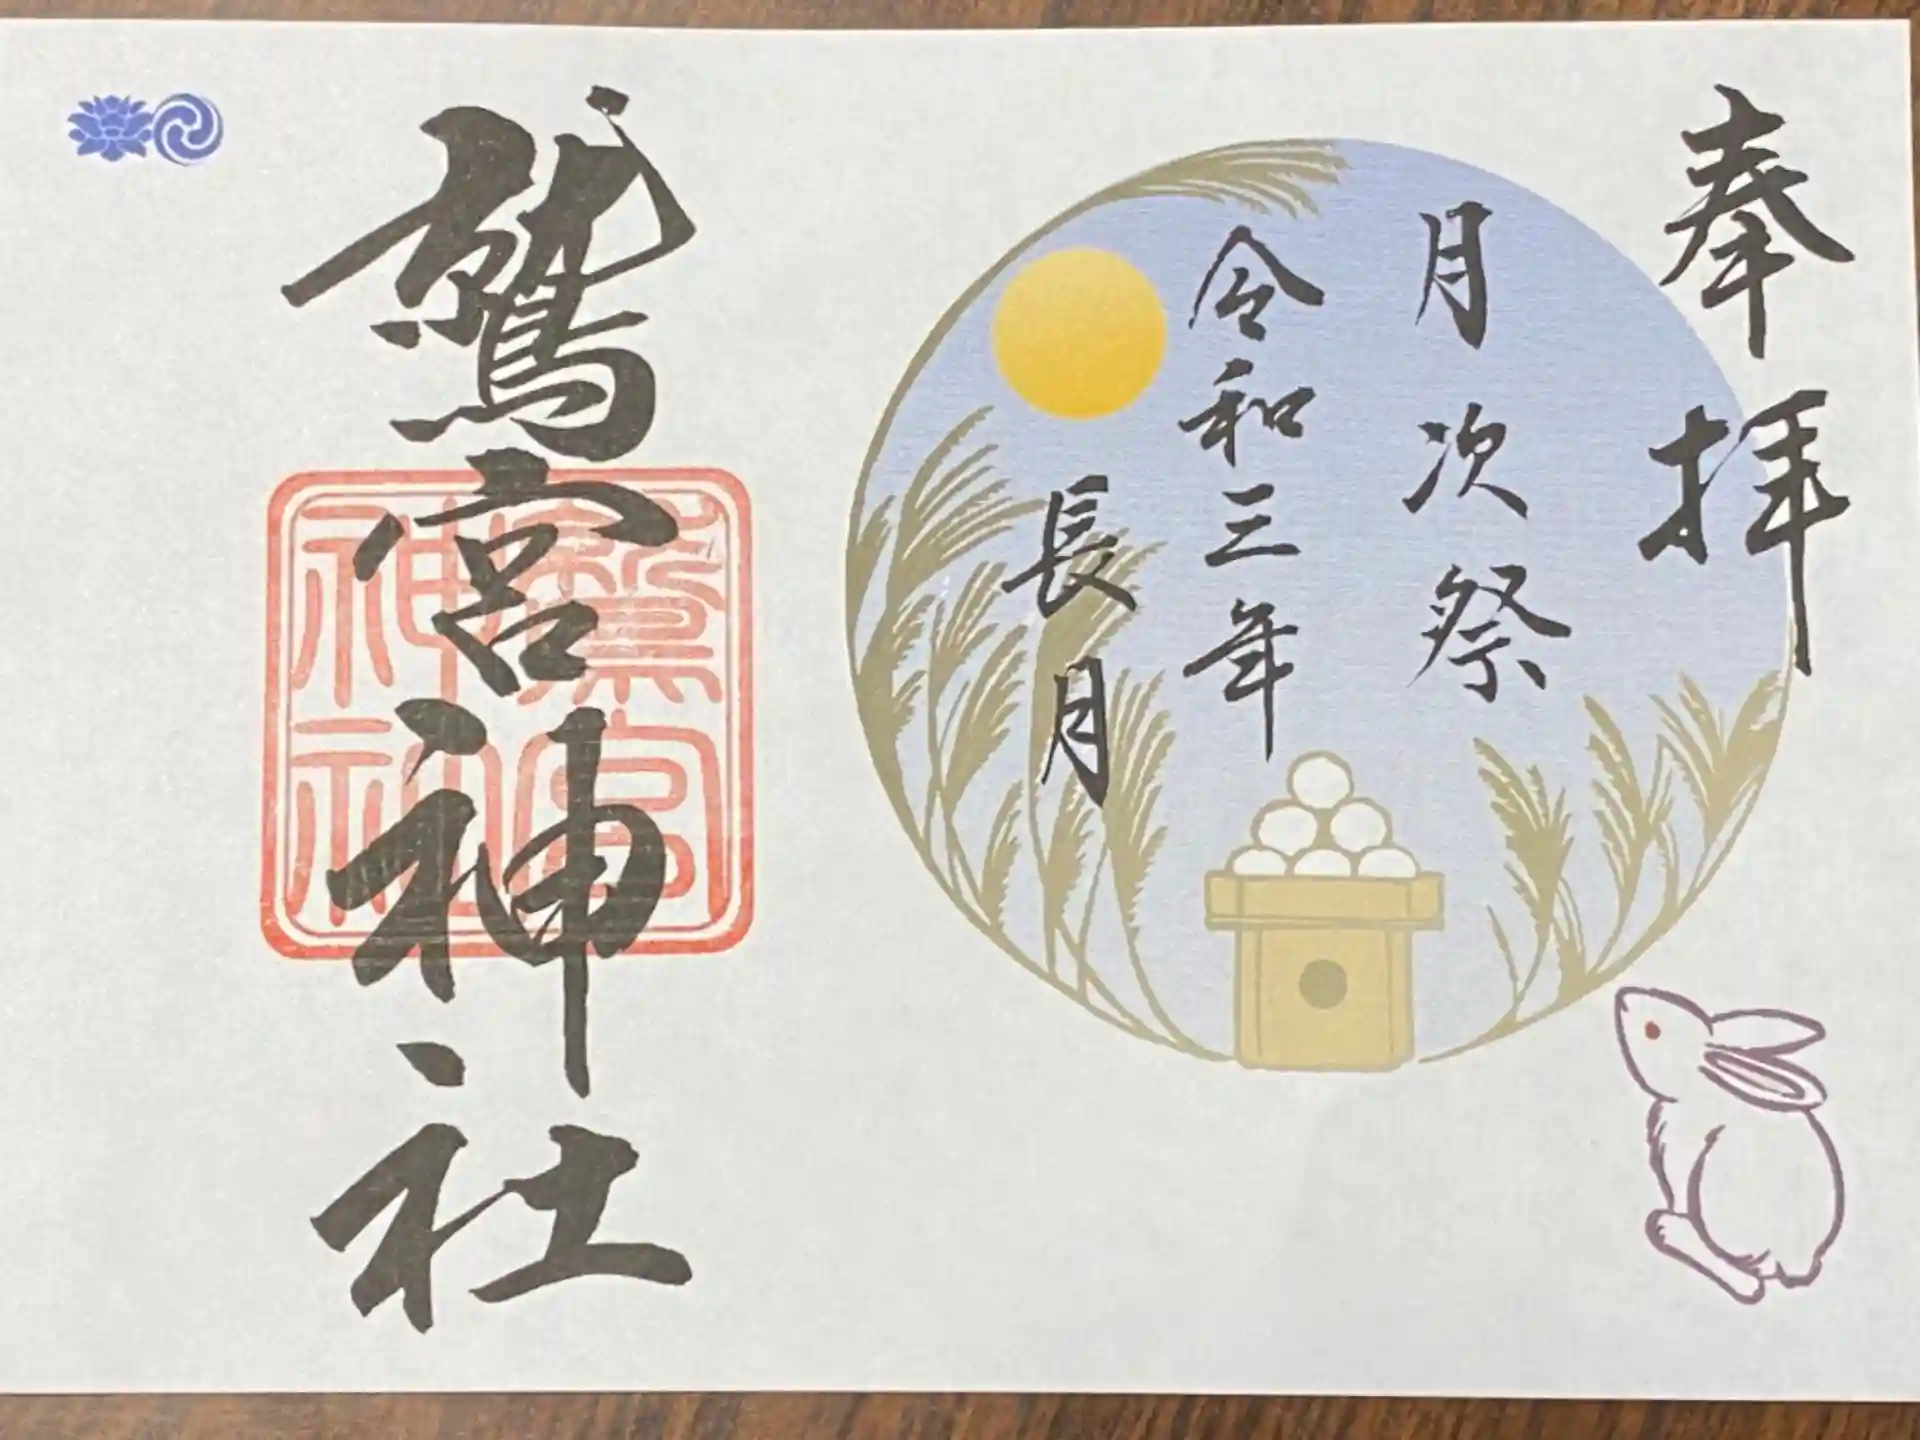 奉拝
月次祭
令和三年
長月
鷲宮神社
鷲宮神社